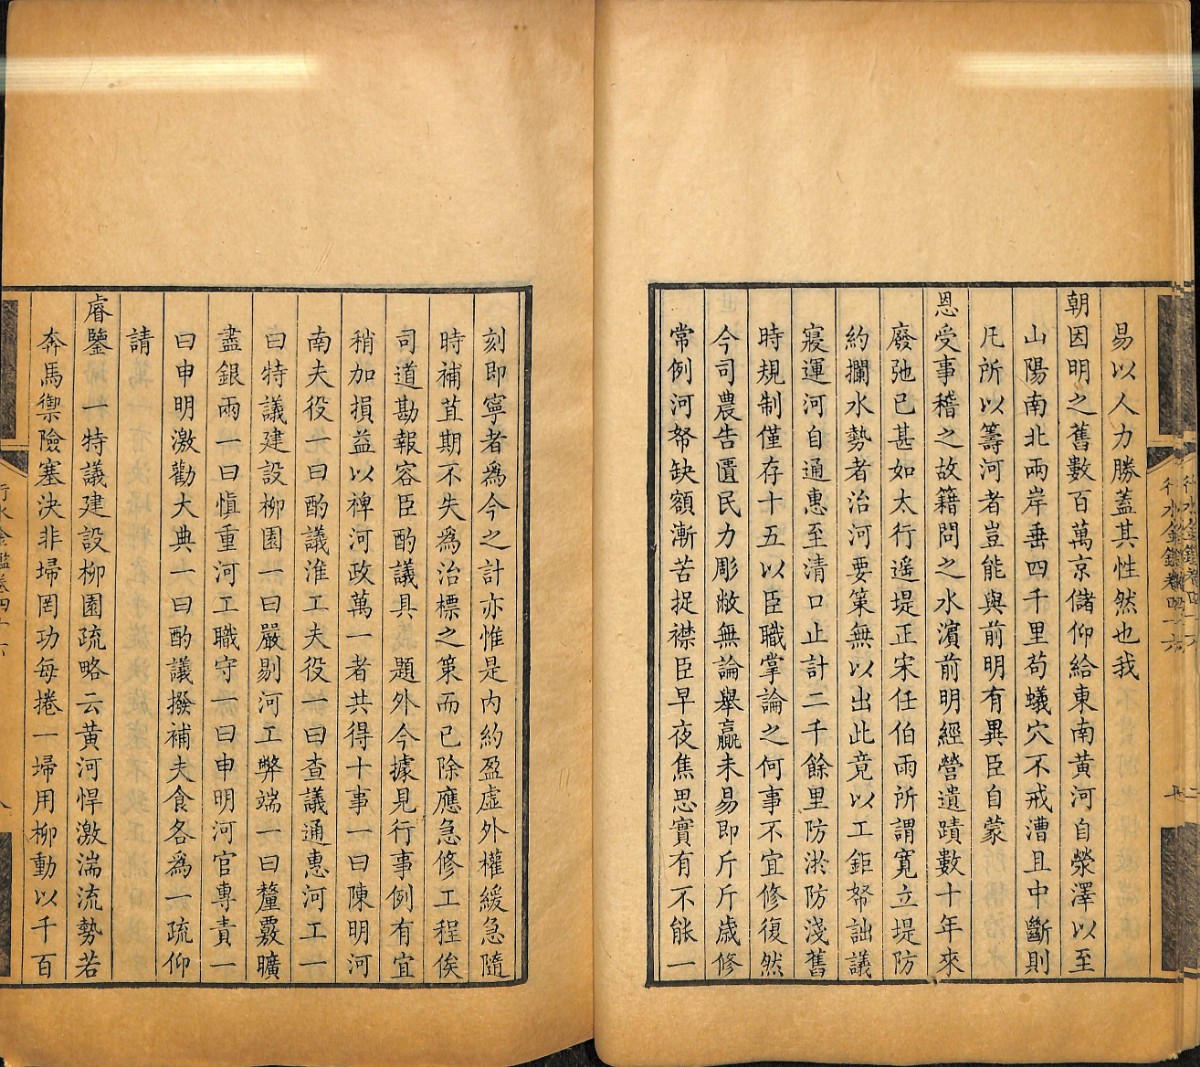 易以人力勝蓋其性然也我
朝因明之舊數百萬京儲仰給東南黃河自滎澤以至
山陽南北兩岸垂四千里苟蟻穴不戒漕且中斷則
凡所以籌河者豈能與前明有異臣自蒙
恩受事稽之故籍問之水濱前明經營遺蹟數十年來
廢弛已甚如太行遥堤正宋任伯雨所謂寬立堤防
約攔水勢者治河要策無以出此竟以工鉅帑詘議
寢運河自通惠至清口止計二千餘里防淤防淺舊
時規制僅存十五以臣職掌論之何事不宜修復然
今司農告匱民力彫敝無論舉贏未易即斤斤歲修
常例河帑缺額漸苦捉襟臣早夜焦思實有不能一
刻即寧者爲今之計亦惟是内約盈虛外權緩急隨
時補苴期不失爲治標之策而已除應急修工程俟
司道勘報容臣酌議具題外今據見行事例有宜
稍加損益以裨河政萬一者共得十事一曰陳明河
南夫役一曰酌議淮工夫役一曰查議通惠河工一
曰特議建設柳園一曰嚴剔河工弊端一曰釐覈曠
盡銀兩一曰慎重河工職守一曰申明河官專責一
曰申明激勸大典一曰酌議撥補夫食各爲一疏仰
請
睿鑒 一特議建設柳園疏略云黃河悍激湍流勢若
奔馬禦險塞決非埽罔功每捲一埽用柳動以千百
行水金鑑卷四十六
八